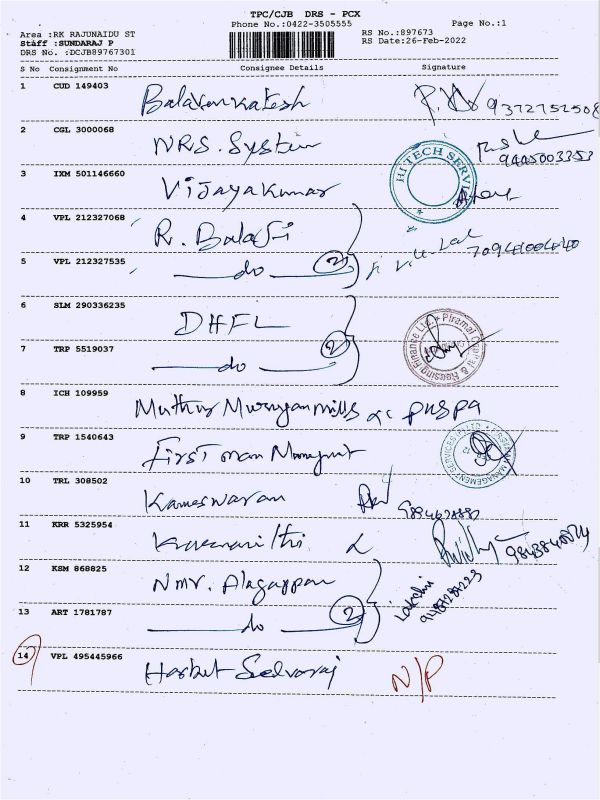 TPC/CJB DRS - PCX
Phone No.:0422-3505555 Page No.:1
Area :RK RAJUNAIDU ST RS No.:897673
Staff :SUNDARAJ P RS Date:26-Feb-2022
DRS No. :DCJB89767301
S No Consignment No Consignee Details Signature
1 CUD 149403 Balavenkatesh
2 CGL 3000068 NRS. System
9445003353
HITECH SERVIC
3 IXM 501146660 Vijayakumar
4 VPL 212327068 R. Balaji
5 VPL 212327535 do 2
6 SLM 290336235 DHFL
Piramal Capital & Housing Finance Ltd.
7 TRP 5519037 do 2
8 ICH 109959 Muthu Murugan mills
9 TRP 1540643 First man
MANAGEMENT SERVICES (P) LTD
10 TRL 308502 Kameswaran
11 KRR 5325954
12 KSM 868825 Nmr. Alagappan
Lakshmi
13 ART 1781787 do 2
14 VPL 495445966 Selvaraj N/P